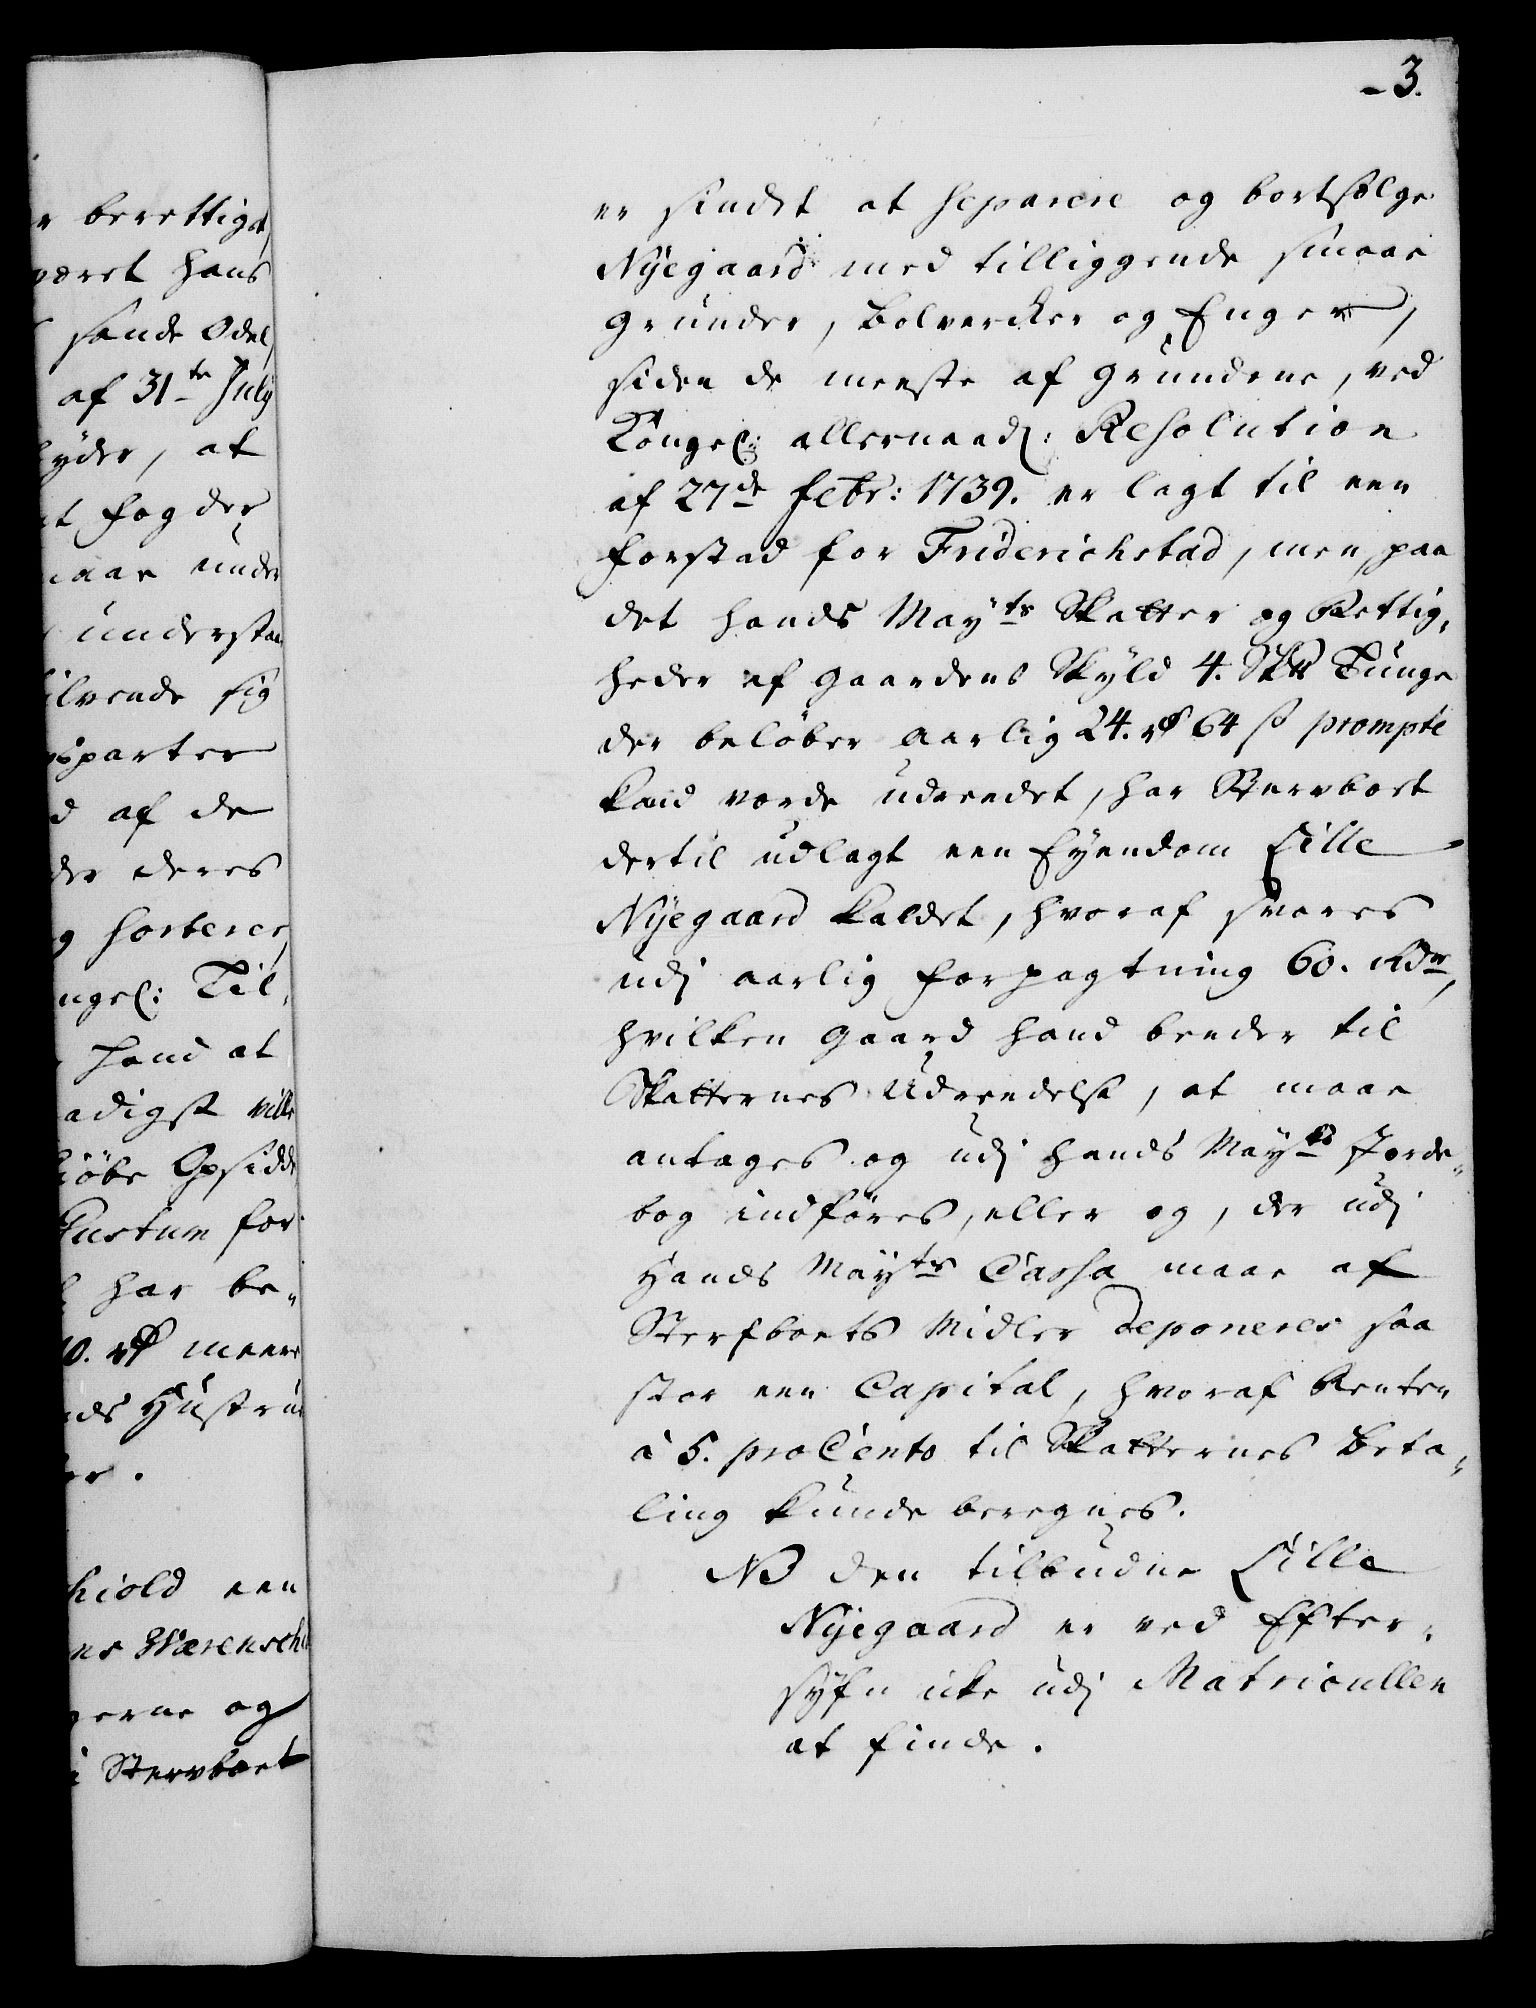 3.
er berettiget,
været hans
sande Odel,
af 31te July
lyder, at
fogder
maae under
understaa
tilvende sig
parter
af de
der deres
sorterer,
ongel: Til,
hand at
naadigst ville
kiöbe Opsidde
Qustum for
har be„
0. rd meere
hands Hustru
er.
skiold een
ns Wærensch
gerne og
i Stervboet
er sindet at separere og bortsælge
Nÿegaard med tilliggende smaae
grunder, Bolvercker og Enger,
siden de meeste af grundene, ved
Kongel: allernaad: Resolution
af 27de Febr: 1739. er lagt til een
forstad for Friderichstad, men paa
det hands Mayts Skatter og Rettig„
heder af gaardens Skyld 4. Skt Tunge
der beløber aarlig 24. rd 64 s prompte
kand vorde udreedet, har Stervboet
dertil udlagt een Eyendom Lille
Nÿegaard kaldet, hvoraf svares
udj aarlig forpagtning 60. Rdr,
hvilken gaard hand beeder til
Skatternes Udreedelse, at maae
antages og udj hands Mayts Jorde„
bog indføres, eller og, der udj
Hands Mayts Cassa maae af
Sterfboets Midler deponeres saa
stor een Capital, hvoraf Renten
à 5. proCento til Skatternes Beta„
ling kunde beregnes.
NB den tilbudne Lille
Nÿegaard er ved Efter„
syfn icke udj Matricullen
at finde.